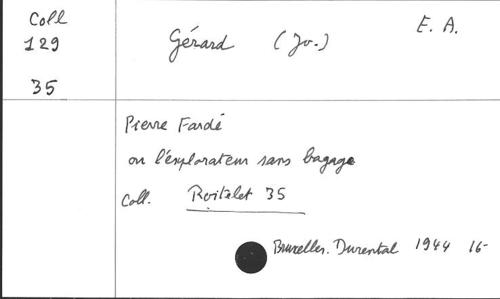 Coll
129
35
Gérard (Jo.)
E. A.
Pierre Fardé
ou l'explorateur sans bagage
Coll. Roitelet 35
Bruxelles. Durental 1944 16-